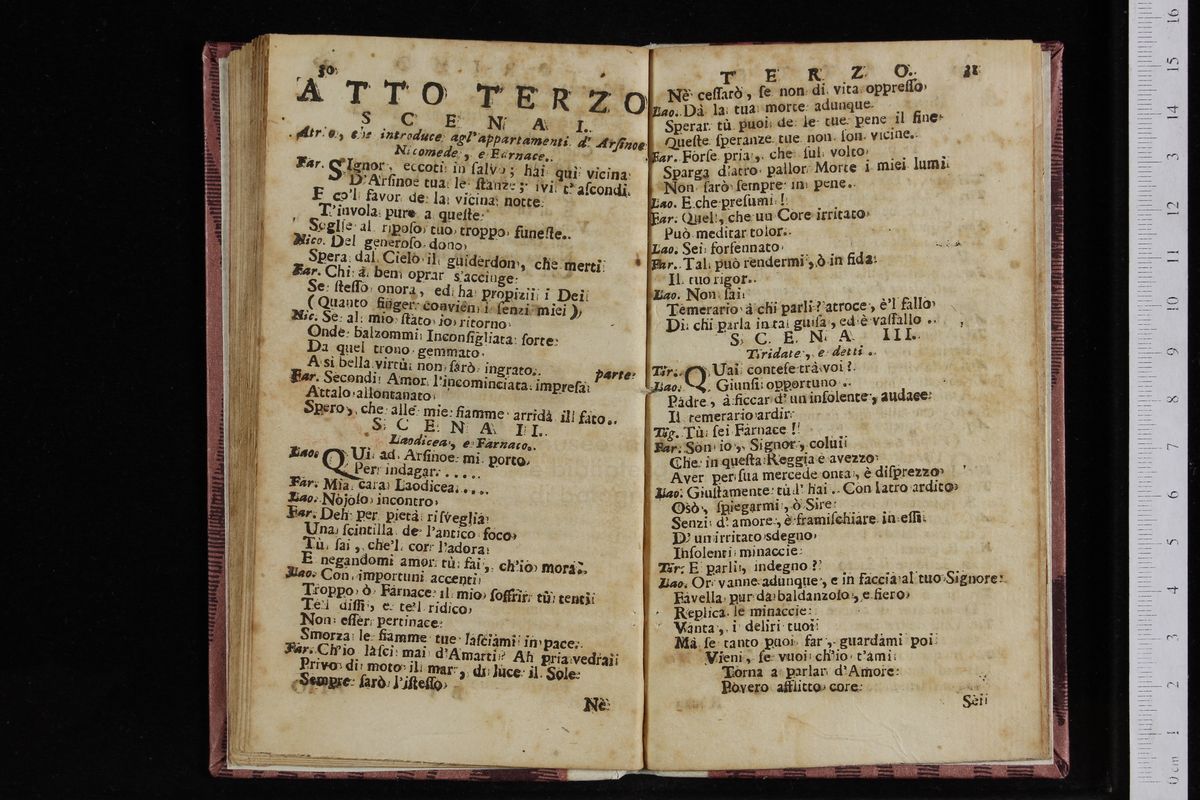 50
ATTO TERZO
SCENA I.
Atrio, che introduce agl'appartamenti d'Arsinoe
Nicomede, e Farnace.
Far. SIgnor, eccoti in salvo; hai qui vicina
D'Arsinoe tua le stanze; ivi t'ascondi
E co'l favor de la vicina notte
T'invola pure a queste
Soglie al riposo tuo troppo funeste.
Nico. Del generoso dono
Spera dal Cielo il guiderdon, che merti
Far. Chi à ben oprar s'accinge
Se stesso onora, ed ha propizii i Dei
(Quanto finger convien i senzi miei)
Nic. Se al mio stato io ritorno
Onde balzommi Inconsigliata sorte
Da quel trono gemmato
A si bella virtù non sarò ingrato. parte
Far. Secondi Amor l'incominciata impresa
Attalo allontanato
Spero, che alle mie fiamme arridà il fato.
SCENA II.
Laodicea, e Farnaco.
Lao. QUi ad Arsinoe mi porto
Per indagar.....
Far. Mia cara Laodicea....
Lao. Nojoso incontro
Far. Deh per pietà risveglia
Una scintilla de l'antico foco
Tù sai, che'l cor l'adora
E negandomi amor tù fai, ch'io mora.
Lao. Con importuni accenti
Troppo ò Farnace il mio soffrir tù tenti
Te'l dissi, e te'l ridico
Non esser pertinace
Smorza le fiamme tue lasciami in pace.
Far. Ch'io lasci mai d'Amarti? Ah pria vedrai
Privo di moto il mar, di luce il Sole
Sempre sarò l'istesso
Nè
TERZO. 51
Nè cessarò, se non di vita oppresso
Lao. Dà la tua morte adunque
Sperar tù puoi de le tue pene il fine
Queste speranze tue non son vicine.
Far. Forse pria, che sul volto
Sparga d'atro pallor Morte i miei lumi
Non sarò sempre in pene.
Lao. E che presumi!
Far. Quel, che un Core irritato
Può meditar tolor.
Lao. Sei forsennato
Far. Tal può rendermi, ò in fida
Il tuo rigor.
Lao. Non sai
Temerario à chi parli? atroce, è'l fallo
Di chi parla in tal guisa, ed è vassallo.
SCENA III.
Tiridate, e detti.
Tir. QUai contese trà voi?
Lao. Giunsi opportuno.
Padre, à ficcar d'un insolente, audace
Il temerario ardir
Tig. Tù sei Farnace!
Far. Son io, Signor, colui
Che in questa Reggia è avezzo
Aver per sua mercede onta, è disprezzo
Lao. Giustamente tù l' hai. Con latro ardito
Osò, spiegarmi, ò Sire
Senzi d'amore, è framischiare in essi
D'un irritato sdegno
Insolenti minaccie
Tir. E parli, indegno?
Lao. Or vanne adunque, e in faccia al tuo Signore
Favella pur da baldanzoso, e fiero
Replica le minaccie
Vanta, i deliri tuoi
Mà se tanto puoi far, guardami poi
Vieni, se vuoi ch'io t'ami
Torna a parlar d'Amore
Povero afflitto core
Seii